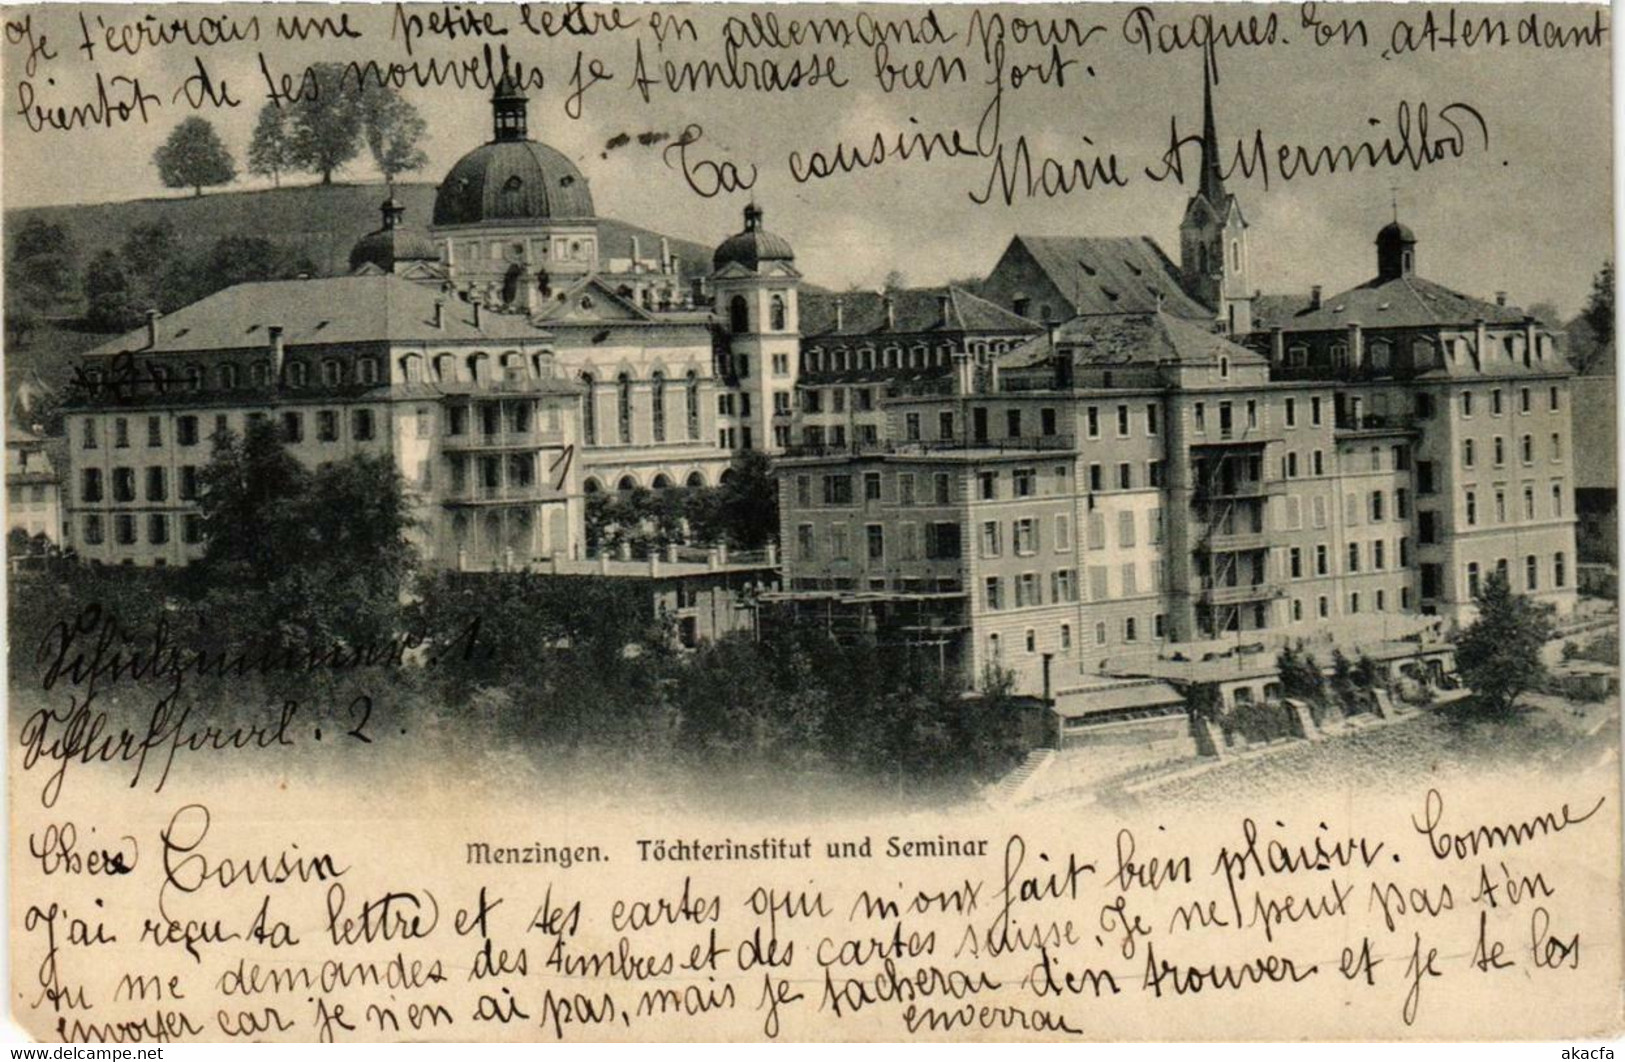 Je t'écrirais une petite lettre en allemand pour Paques. En attendant
bientôt de tes nouvelles je t'embrasse bien fort.
Ta cousine Marie A Mermillod.
3
1
Schulzimmer. 1.
Schlafsaal. 2.
Menzingen. Töchterinstitut und Seminar
Chère Cousin
J'ai reçu ta lettre et tes cartes qui m'ont fait bien plaisir. Comme
tu me demandes des timbres et des cartes suisse. Je ne peut pas t'en
envoyer car je n'en ai pas, mais je tacherai d'en trouver et je te les
enverrai
akacfa
www.delcampe.net